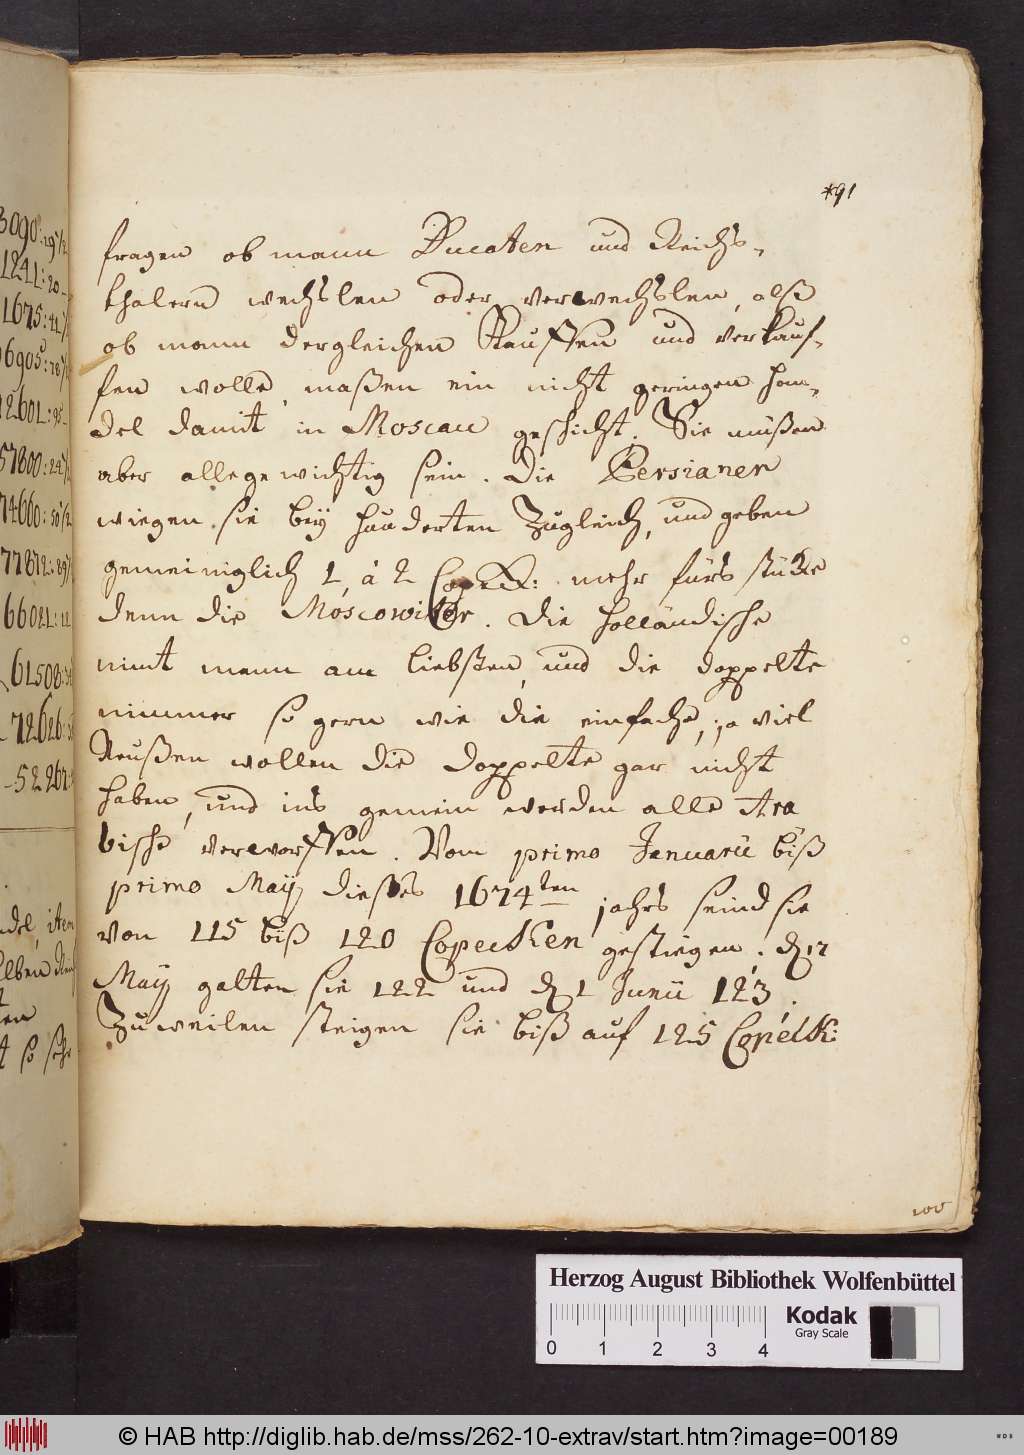 *91
fragen ob mann Ducaten und Reichs-
thalern wechslen oder verwechslen, alß
ob mann dergleichen Kauffen und verkauf-
fen wolle, maßen ein nicht geringen han-
del damit in Moscau geschicht. Sie müßen
aber alle gewichtig sein. Die Persianer
wiegen sie beÿ hunderten Zugleich, und geben
gemeiniglich 1, á 2 Copeck: mehr fürs stücke
denn die Moscowiter. Die holländische
nimt mann am liebsten, und die doppelte
nimmer so gern wie die einfache, ja viel
Reußen wollen die doppelte gar nicht
haben, und ins gemein werden alle Ara
bische verworffen. Vom primo Januarii biß
primo Maÿ dieses 1674ten jahrs seind sie
von 115 biß 120 Copecken gestiegen. d 17
Maÿ galten sie 122 und d 1 Junii 123.
Zuweilen steigen sie biß auf 125 Copeck:
3090:19½
1241:20
1675:41
6905:78
12601:95
57800:24½
74660:50½
77872:89
66021:11
61508:
72626:
5226
ndel, item
elben
ten
t so sehr
Herzog August Bibliothek Wolfenbüttel
0 1 2 3 4
Kodak
Gray Scale
© HAB http://diglib.hab.de/mss/262-10-extrav/start.htm?image=00189